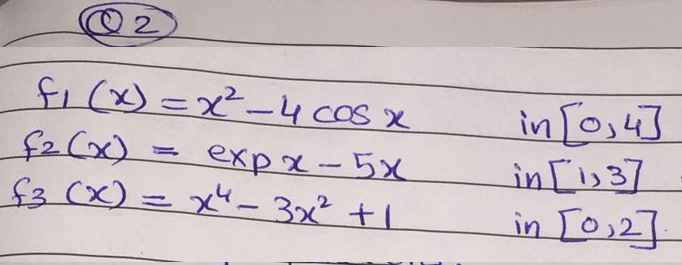 Q2
f₁ (x) = x² - 4 cos x in [0,4]
f₂ (x) = exp x - 5x in [1,3]
f₃ (x) = x⁴ - 3x² + 1 in [0,2]